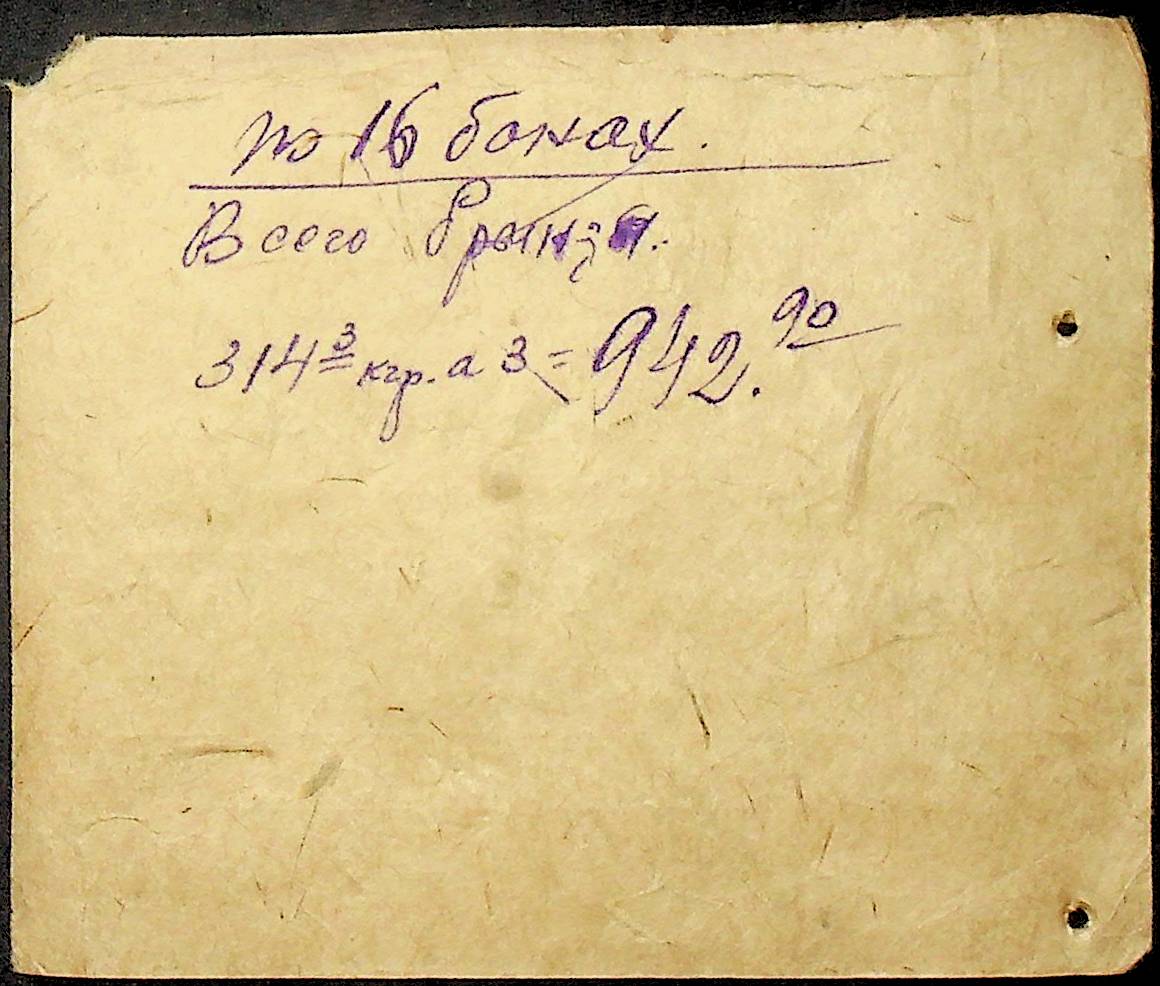 по 16 бонах.
Всего брынзы.
314 3 кгр. а 3 = 942.90